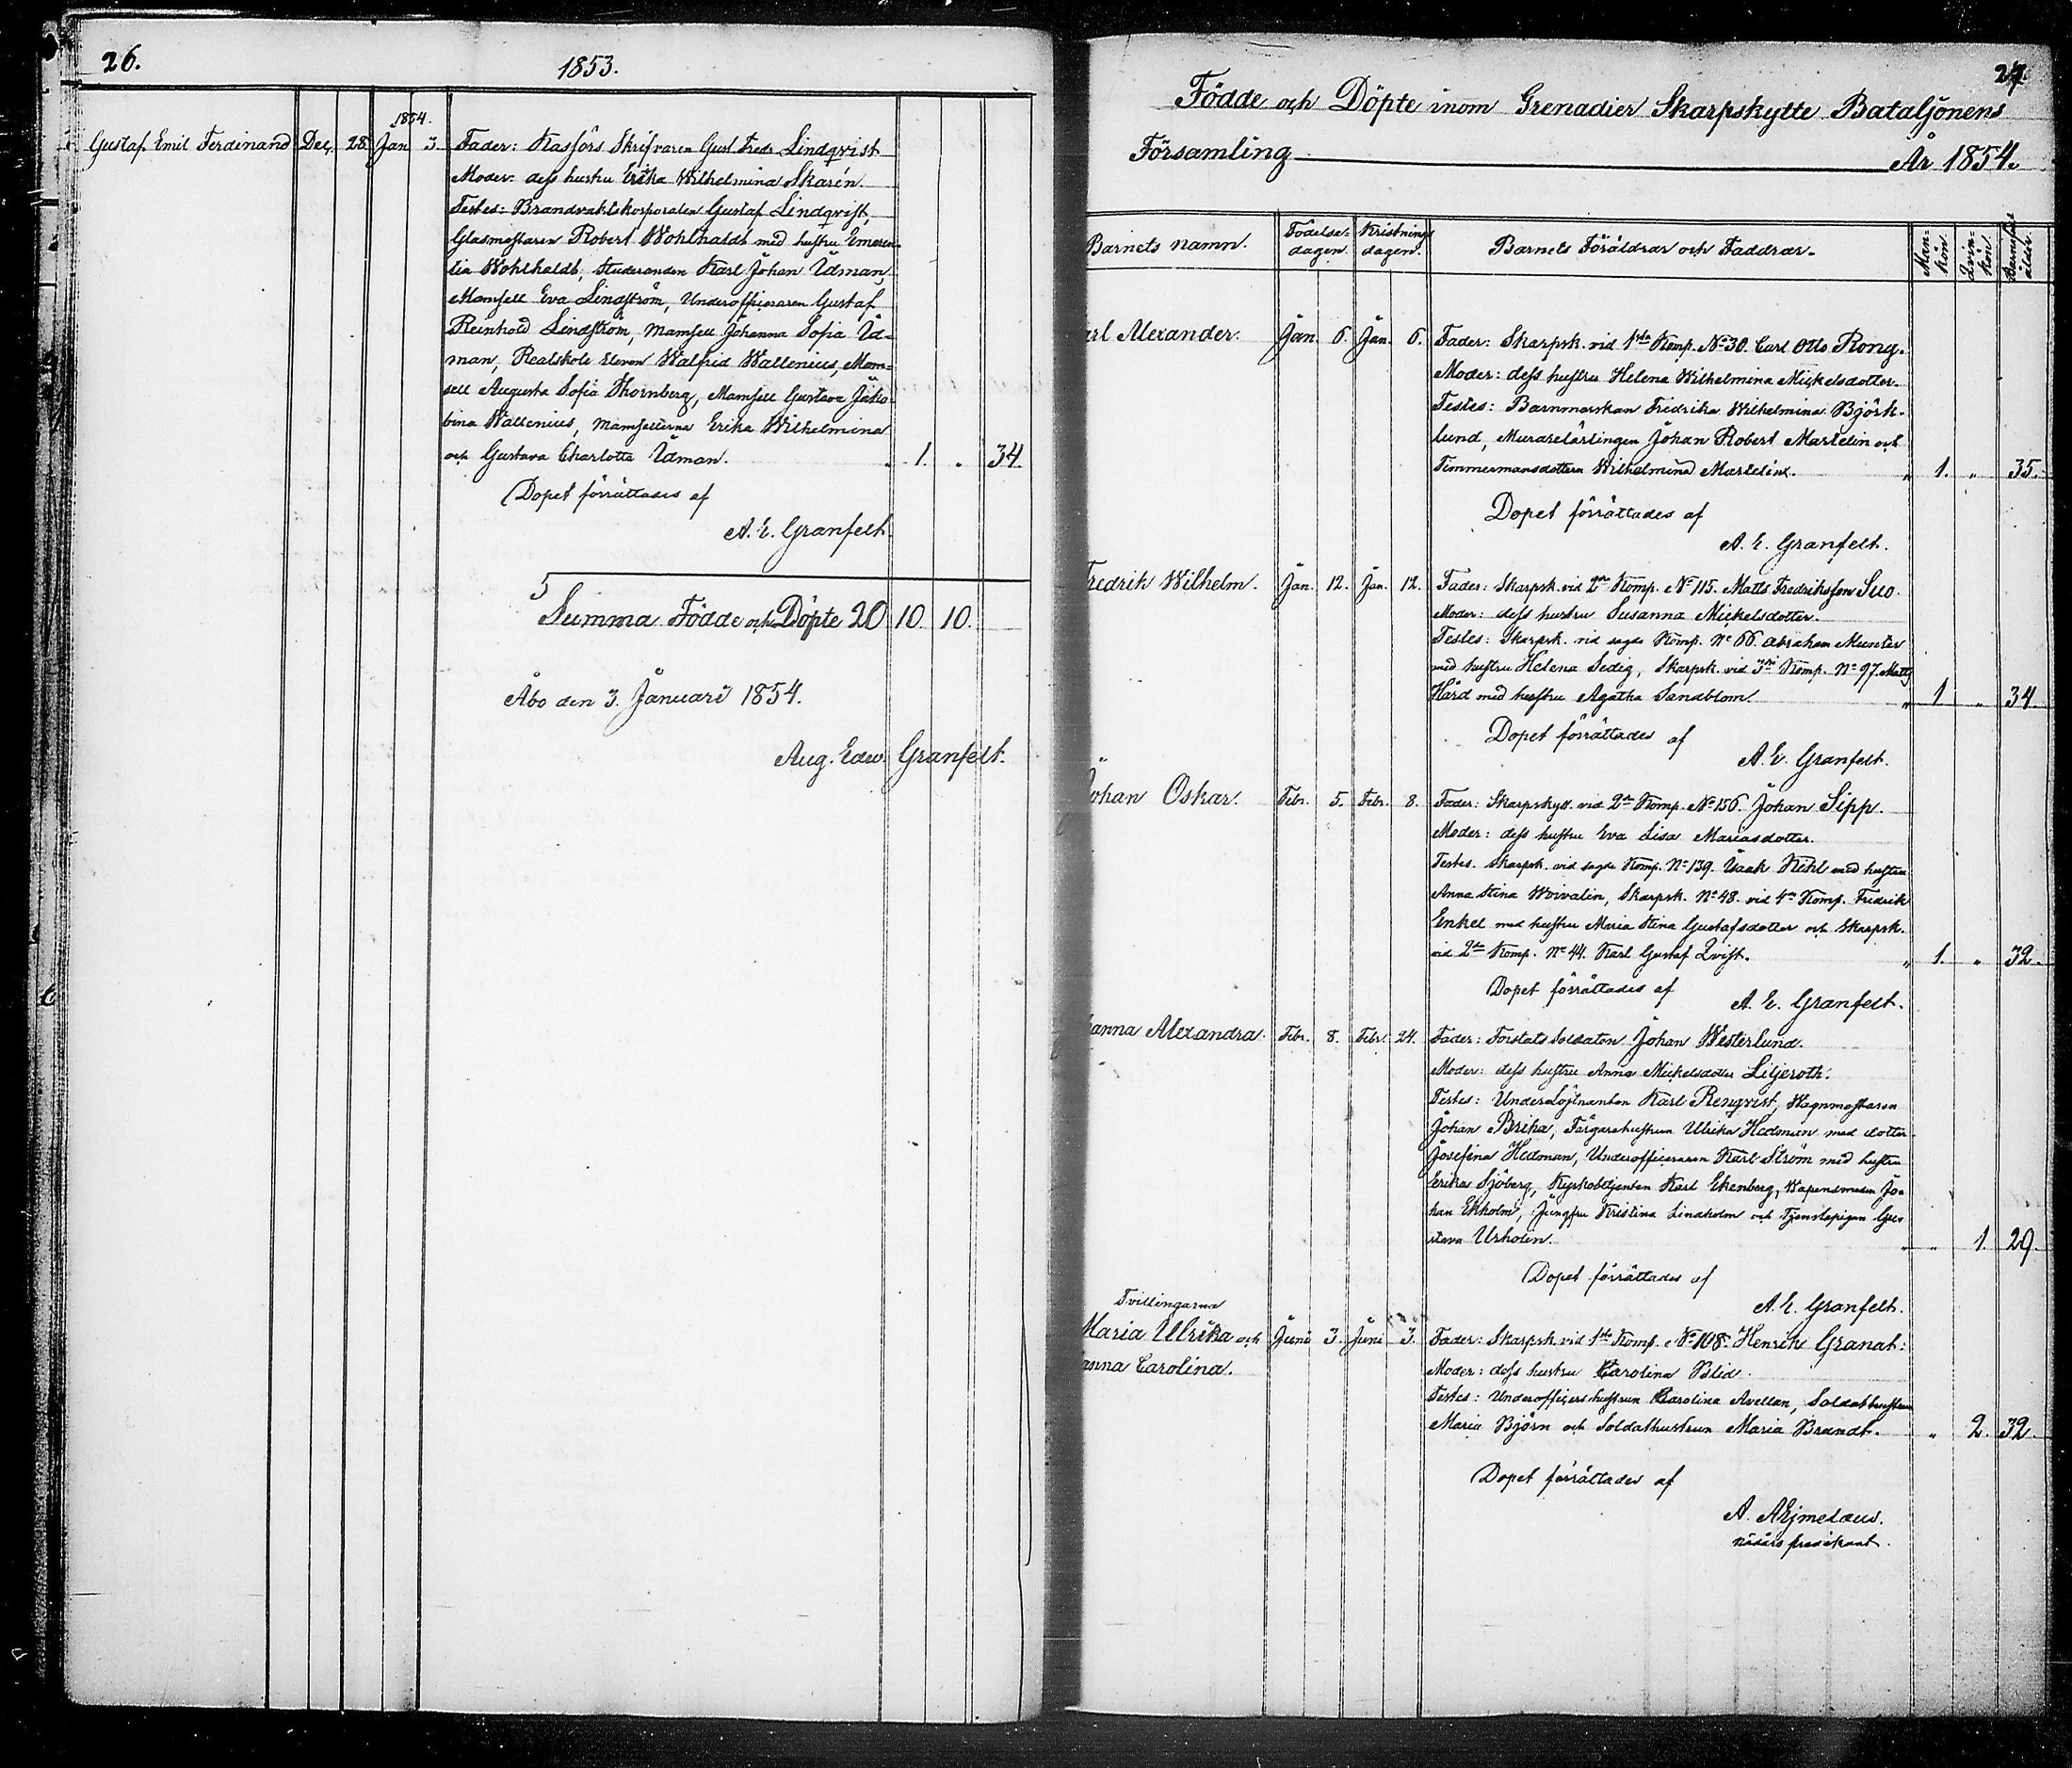 26.
1853.
1854.
Gustaf Emil Ferdinand Dec. 28 Jan 3. Fader: Kassörs Skrifvaren Gust. Fredr. Lindqvist
Moder: dess hustru Erika Wilhelmina Skarén.
Testes: Brandvaktskorporalen Gustaf Lindqvist,
Glasmästaren Robert Wohlhaldt med hustru Emeren-
tia Wohlhaldt, Studeranden Karl Johan Idman,
Mamsell Eva Lindström, Underofficeraren Gustaf
Reinhold Lindström, Mamsell Johanna Sofia Id-
man, Realskole Eleven Walfrid Wallenius, Mam-
sell Augusta Sofia Thornberg, Mamsell Gustava Jako-
bina Wallenius, Mamsellerna Erika Wilhelmina
och Gustava Charlotta Idman. 1. „ 34.
Dopet förrättades af
A. E. Granfelt
Summa Födde och Döpte 20 10. 10.
Åbo den 3. Januari 1854.
Aug. Edw. Granfelt.
27.
Födde och Döpte inom Grenadier Skarpskytte Bataljonens
Församling År 1854.
Barnets namn. Födelse-dagen. Kristnings dagen. Barnets Föräldrar och Faddrar. Man-kön. Qvin-kön. ålder.
arl Alexander. Jan. 6. Jan. 6. Fader: Skarpsk. vid 1sta Komp. No 30. Carl Otto Rong.
Moder: dess hustru Helena Wilhelmina Mickelsdotter.
Testes: Barnmorskan Fredrika Wilhelmina Björk-
lund, Murarelärlingen Johan Robert Martelin och
Timmermansdottern Wilhelmina Martelin. „ 1. „ 35.
Dopet förrättades af
A. E. Granfelt.
Fredrik Wilhelm. Jan. 12. Jan. 12. Fader: Skarpsk. vid 2dra Komp. No 115. Matts Fredriksson Suo.
Moder: dess hustru Susanna Mickelsdotter.
Testes: Skarpsk. vid sagde Komp. No 66. Abraham Munter
med hustru Helena Sedig, Skarpsk. vid 3dje Komp. No 97. Matts
Hård med hustru Agatha Sandblom. „ 1 „ 34.
Dopet förrättades af
A. E. Granfelt.
Johan Oskar. Febr. 5. Febr. 8. Fader: Skarpskytt. vid 2dra Komp. No 156. Johan Sipp.
Moder: dess hustru Eva Lisa Mariasdotter.
Testes. Skarpsk. vid sagde Komp. No 139. Isaak Kihl med hustru
Anna Stina Woivalin, Skarpsk. No 48. vid 4de Komp. Fredrik
Enkel med hustru Maria Stina Gustafsdotter och Skarpsk.
vid 2dra Komp. No 44. Karl Gustaf Qvist. „ 1. „ 32.
Dopet förrättades af
A. E. Granfelt.
anna Alexandra. Febr. 8. Febr. 24. Fader: Forstats Soldaten Johan Westerlund.
Moder: dess hustru Anna Mickelsdotter Liljeroth.
Testes: Underlöjtnanten Karl Renqvist, Wagnmästaren
Johan Brika, Färgarehustrun Ulrika Hedman med dotter
Josefina Hedman, Underofficeraren Karl Ström med hustru
Erika Sjöberg, Kyrkobetjenten Karl Ekenberg, Wapensmeden Jo-
han Ekholm, Jungfru Kristina Lindholm och Tjenstepigan Gus-
stava Urholin. „ „ 1. 29.
Dopet förrättades af
A. E. Granfelt.
Tvillingarna
Maria Ulrika och Juni 3. Juni 3. Fader: Skarpsk. vid 1sta Komp. No 108. Henrik Granat.
anna Carolina. Moder: dess hustru Carolina Blid.
Testes: Underofficershustrun Carolina Avellan, Soldathustrun
Maria Björn och Soldathustrun Maria Brandt. „ 2. 32.
Dopet förrättades af
A. Ahjmelæus.